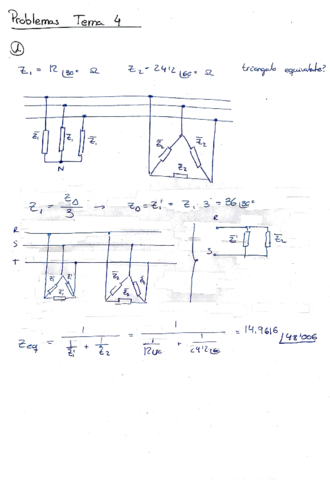 Problemas Tema 4
1.
Z₁ = 12 |30° Ω Z₂ = 24'2 |60° Ω triangulo equivalente?
Z̄₁ Z̄₁ Z̄₁ Z̄₂ Z̄₂ Z₂
N
Z₁ = Z_Δ / 3 → Z_Δ = Z₁' = Z₁ · 3 = 36 |30°
R
S
T
R
S
Z̄₂
Z_eq = 1 / (1/Z₁' + 1/Z₂) = 1 / (1/12 + 1/24'2 |60) = 14,9616 |48'006